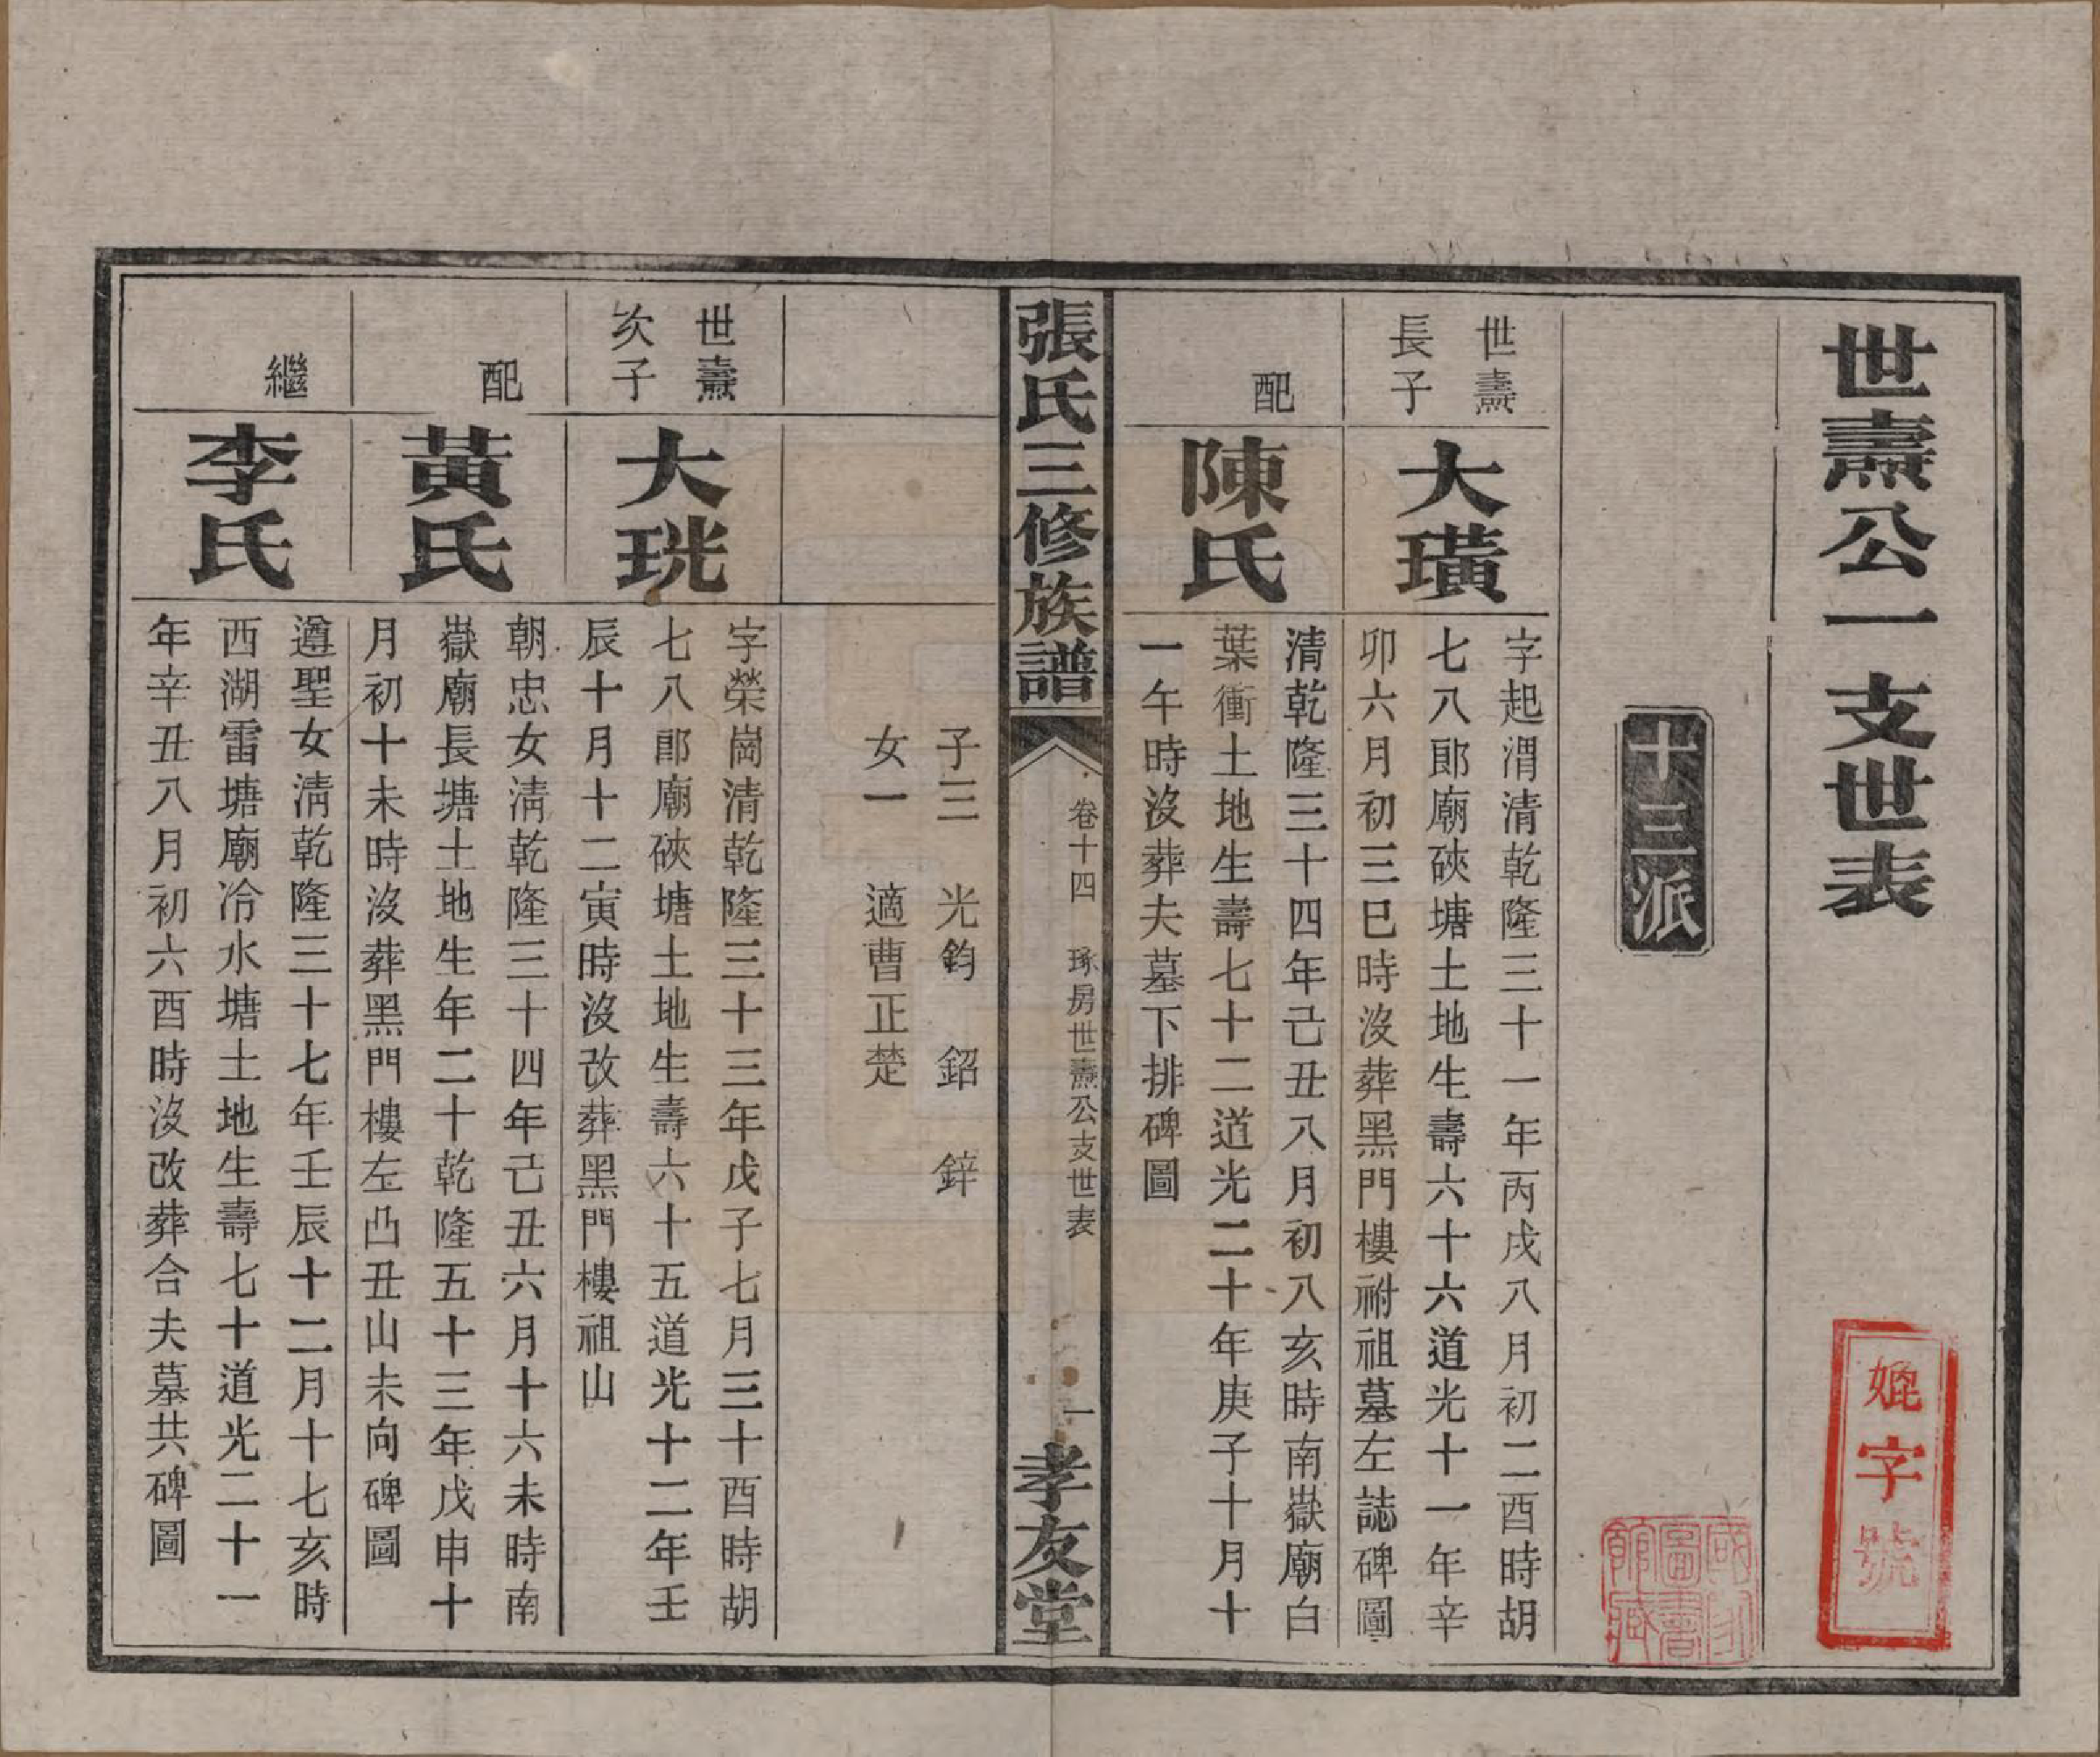 世燾公一支世表
字號
十三派
世燾
長子
大璜
字起渭清乾隆三十一年丙戌八月初二酉時胡
七八郎廟硤塘土地生壽六十六道光十一年辛
卯六月初三巳時沒葬黑門樓祔祖墓左誌碑圖
配
陳氏
清乾隆三十四年己丑八月初八亥時南嶽廟白
葉衝土地生壽七十二道光二十年庚子十月十
一午時沒葬夫墓下排碑圖
張氏三修族譜
卷十四
琢房世燾公支世表
一
孝友堂
子三 光鈞 鉊 鋅
女一 適曹正楚
世燾
次子
大珖
字榮崗清乾隆三十三年戊子七月三十酉時胡
七八郎廟硤塘土地生壽六十五道光十二年壬
辰十月十二寅時沒改葬黑門樓祖山
配
黃氏
朝忠女淸乾隆三十四年己丑六月十六未時南
嶽廟長塘土地生年二十乾隆五十三年戊申十
月初十未時沒葬黑門樓左凸丑山未向碑圖
繼
李氏
遵聖女淸乾隆三十七年壬辰十二月十七亥時
西湖雷塘廟冷水塘土地生壽七十道光二十一
年辛丑八月初六酉時沒改葬合夫墓共碑圖